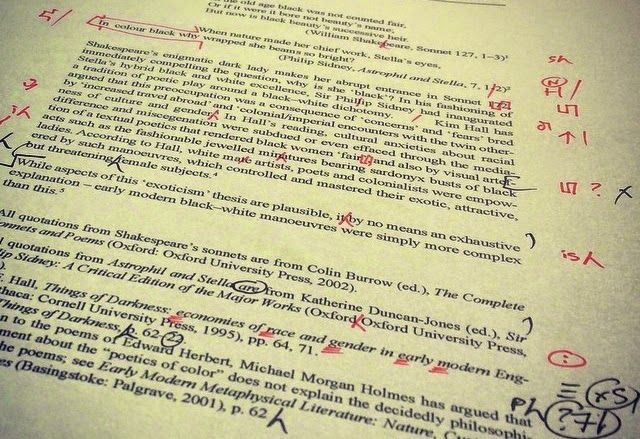 the old age black was not counted fair,
Or if it were it bore not beauty's name.
But now is black beauty's successive heir.
(William Shakespeare, Sonnet 127, 1–3)¹
When nature made her chief work, Stella's eyes,
In colour black why wrapped she beams so bright?
(Philip Sidney, Astrophil and Stella, 7. 1–2)²
Shakespeare's enigmatic dark lady makes her abrupt entrance in Sonnet 127
immediately compelling the question, why is she 'black'? In his fashioning of
Stella's hybrid black and white excellence, Sir Philip Sidney had inaugurated
a tradition of poetic play around a black–white dichotomy. Kim Hall has
argued that this preoccupation was a consequence of 'concerns' and 'fears' bred
by 'increased travel abroad' and 'colonial/imperial encounters with the twin other-
ness of culture and gender'. In Hall's reading, cultural anxieties about racial
difference and miscegenation were subdued or even effaced through the media-
tion of a textual poetics that rendered black women 'fair' and also by visual arte-
facts such as the fashionable jewelled miniatures bearing sardonyx busts of black
ladies. According to Hall, white male artists, poets and colonialists were empow-
ered by such manoeuvres, which controlled and mastered their exotic, attractive,
but threatening female subjects.⁴
While aspects of this 'exoticism' thesis are plausible, it by no means an exhaustive
explanation – early modern black–white manoeuvres were simply more complex
than this.⁵
All quotations from Shakespeare's sonnets are from Colin Burrow (ed.), The Complete
Sonnets and Poems (Oxford: Oxford University Press, 2002).
quotations from Astrophil and Stella are from Katherine Duncan-Jones (ed.), Sir
Philip Sidney: A Critical Edition of the Major Works (Oxford: Oxford University Press,
F. Hall, Things of Darkness: economies of race and gender in early modern Eng-
Ithaca: Cornell University Press, 1995), pp. 64, 71.
Things of Darkness, p. 62
n to the poems of Edward Herbert, Michael Morgan Holmes has argued that
ment about the "poetics of color" does not explain the decidedly philosophi
he poems; see Early Modern Metaphysical Literature: Nature, Cu
es (Basingstoke: Palgrave, 2001), p. 62